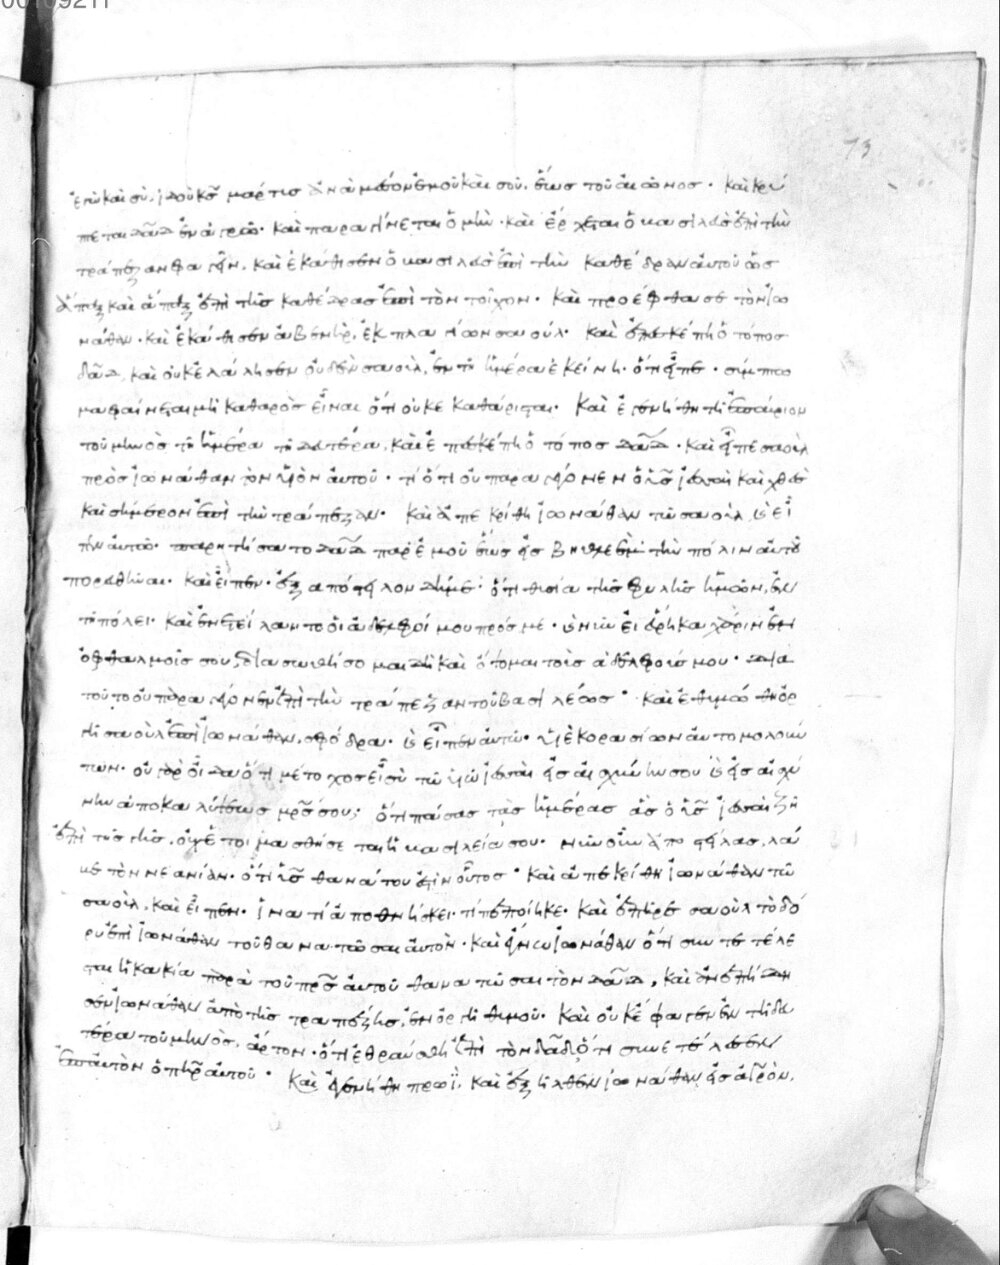 00109211
73
ἐγὼ καὶ σύ, ἰδοὺ κς μάρτις ἀνὰ μέσον ἐμοῦ καὶ σοῦ, ἕως τοῦ αἰῶνος. Καὶ κρύ
πεται δαδ ἐν ἀγρῶ. καὶ παραγίνεται ὁ μὴν. καὶ ἔρχεται ὁ βασιλεὺς ἐπὶ τὴν
τράπεζαν φαγεῖν. καὶ ἐκάθησεν ὁ βασιλεὺς ἐπὶ τὴν καθέδραν αὐτοῦ ὡς
ἅπαξ καὶ ἅπαξ ἐπὶ τῆς καθέδρας ἐπὶ τὸν τοῖχον. Καὶ προέφθασε τὸν ἰω
νάθαν. καὶ ἐκάθησεν ἀβενὴρ, ἐκ πλαγίων σαούλ. καὶ ἐπεσκέπη ὁ τόπος
δαδ, καὶ οὐκ ἐλάλησεν οὐδὲν σαοὺλ, ἐν τῆ ἡμέρα ἐκείνη. ὅτι εἶπε. σύμπτω
μα φαίνεται μὴ καθαρὸς εἶναι ὅτι οὐ κεκαθάρισται. Καὶ ἐγενήθη τῆ ἐπαύριον
τοῦ μηνὸς τῆ ἡμέρα τῆ δευτέρα, καὶ ἐπεσκέπη ὁ τόπος δαδ. καὶ εἶπε σαοὺλ
πρὸς ἰωνάθαν τὸν υἱὸν αὐτοῦ. τί ὅτι οὐ παραγέγονεν ὁ υἱς ἰεσσαὶ καὶ χθὲς
καὶ σήμερον ἐπὶ τὴν τράπεζαν. Καὶ ἀπεκρίθη ἰωνάθαν τῶ σαοὺλ, καὶ εἶ
πεν αὐτῶ. παρητήσατο δαδ παρ' ἐμοῦ ἕως εἰς βηθλεὲμ τὴν πόλιν αὐτοῦ
πορευθῆναι. καὶ εἶπεν. ἐξαπόστειλον δή με. ὅτι θυσία τῆς φυλῆς ἡμῶν, ἐν
τῆ πόλει. καὶ ἐνετείλαντο οἱ ἀδελφοί μου πρός με. καὶ νῦν εἰ εὕρηκα χάριν ἐν
ὀφθαλμοῖς σου, διασωθήσομαι δὴ καὶ ὄψομαι τοὺς ἀδελφούς μου. διὰ
τοῦτο οὐ παραγέγονεν ἐπὶ τὴν τράπεζαν τοῦ βασιλέως. καὶ ἐθυμώθη ὀρ
γῆ σαοὺλ ἐπὶ ἰωνάθαν, σφόδρα. καὶ εἶπεν αὐτῶ. υἱὲ κορασίων αὐτομολούν
των. οὐ γὰρ οἶδα ὅτι μέτοχος εἶ σὺ τῶ υἱῶ ἰεσσαὶ εἰς αἰσχύνην σου καὶ εἰς αἰσχύ
νην ἀποκαλύψεως μρς σου; ὅτι πάσας τὰς ἡμέρας ἃς ὁ υἱς ἰεσσαὶ ζῆ
ἐπὶ τῆς γῆς, οὐχ' ἑτοιμασθήσεται ἡ βασιλεία σου. νῦν οὖν ἀποστείλας, λά
βε τὸν νεανίαν. ὅτι υἱς θανάτου ἐστὶν οὗτος. Καὶ ἀπεκρίθη ἰωνάθαν τῶ
σαοὺλ, καὶ εἶπεν. ἵνα τί ἀποθνήσκει. τί πεποίηκε. καὶ ἐπῆρε σαοὺλ τὸ δό
ρυ ἐπὶ ἰωνάθαν τοῦ θανατῶσαι αὐτόν. καὶ ἔγνω ἰωνάθαν ὅτι συντετέλε
σται ἡ κακία παρὰ τοῦ πρς αὐτοῦ θανατῶσαι τὸν δαδ, καὶ ἀνεπήδη
σεν ἰωνάθαν ἀπὸ τῆς τραπέζης, ἐν ὀργῆ θυμοῦ. Καὶ οὐκ ἔφαγεν ἐν τῆ δευ
τέρα τοῦ μηνὸς, ἄρτον. ὅτι ἐθραύσθη ἐπὶ τὸν δαδ ὅτι συνετέλεσεν
ἐπ' αὐτὸν ὁ πηρ αὐτοῦ. Καὶ ἐγενήθη πρωῒ, καὶ ἐξῆλθεν ἰωνάθαν εἰς ἀγρὸν,